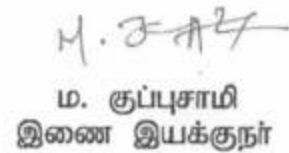 ம. குப்புசாமி
இணை இயக்குநர்